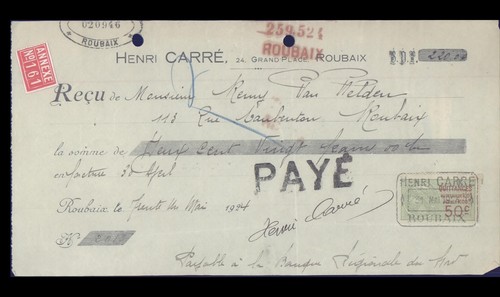 020946
ROUBAIX
259.524
ROUBAIX
ANNEXE
No 161
HENRI CARRÉ, 24, GRAND'PLACE, ROUBAIX
B.P.F.
Reçu de Monsieur Remy Van Velden
113 Rue Daubenton Roubaix
la somme de Deux Cent Vingt
en facture 30 Avril
PAYÉ
Roubaix, le Trente Mai 1924
Henri Carré
HENRI CARRÉ
50c
ROUBAIX
No
Payable à la Banque Régionale du Nord